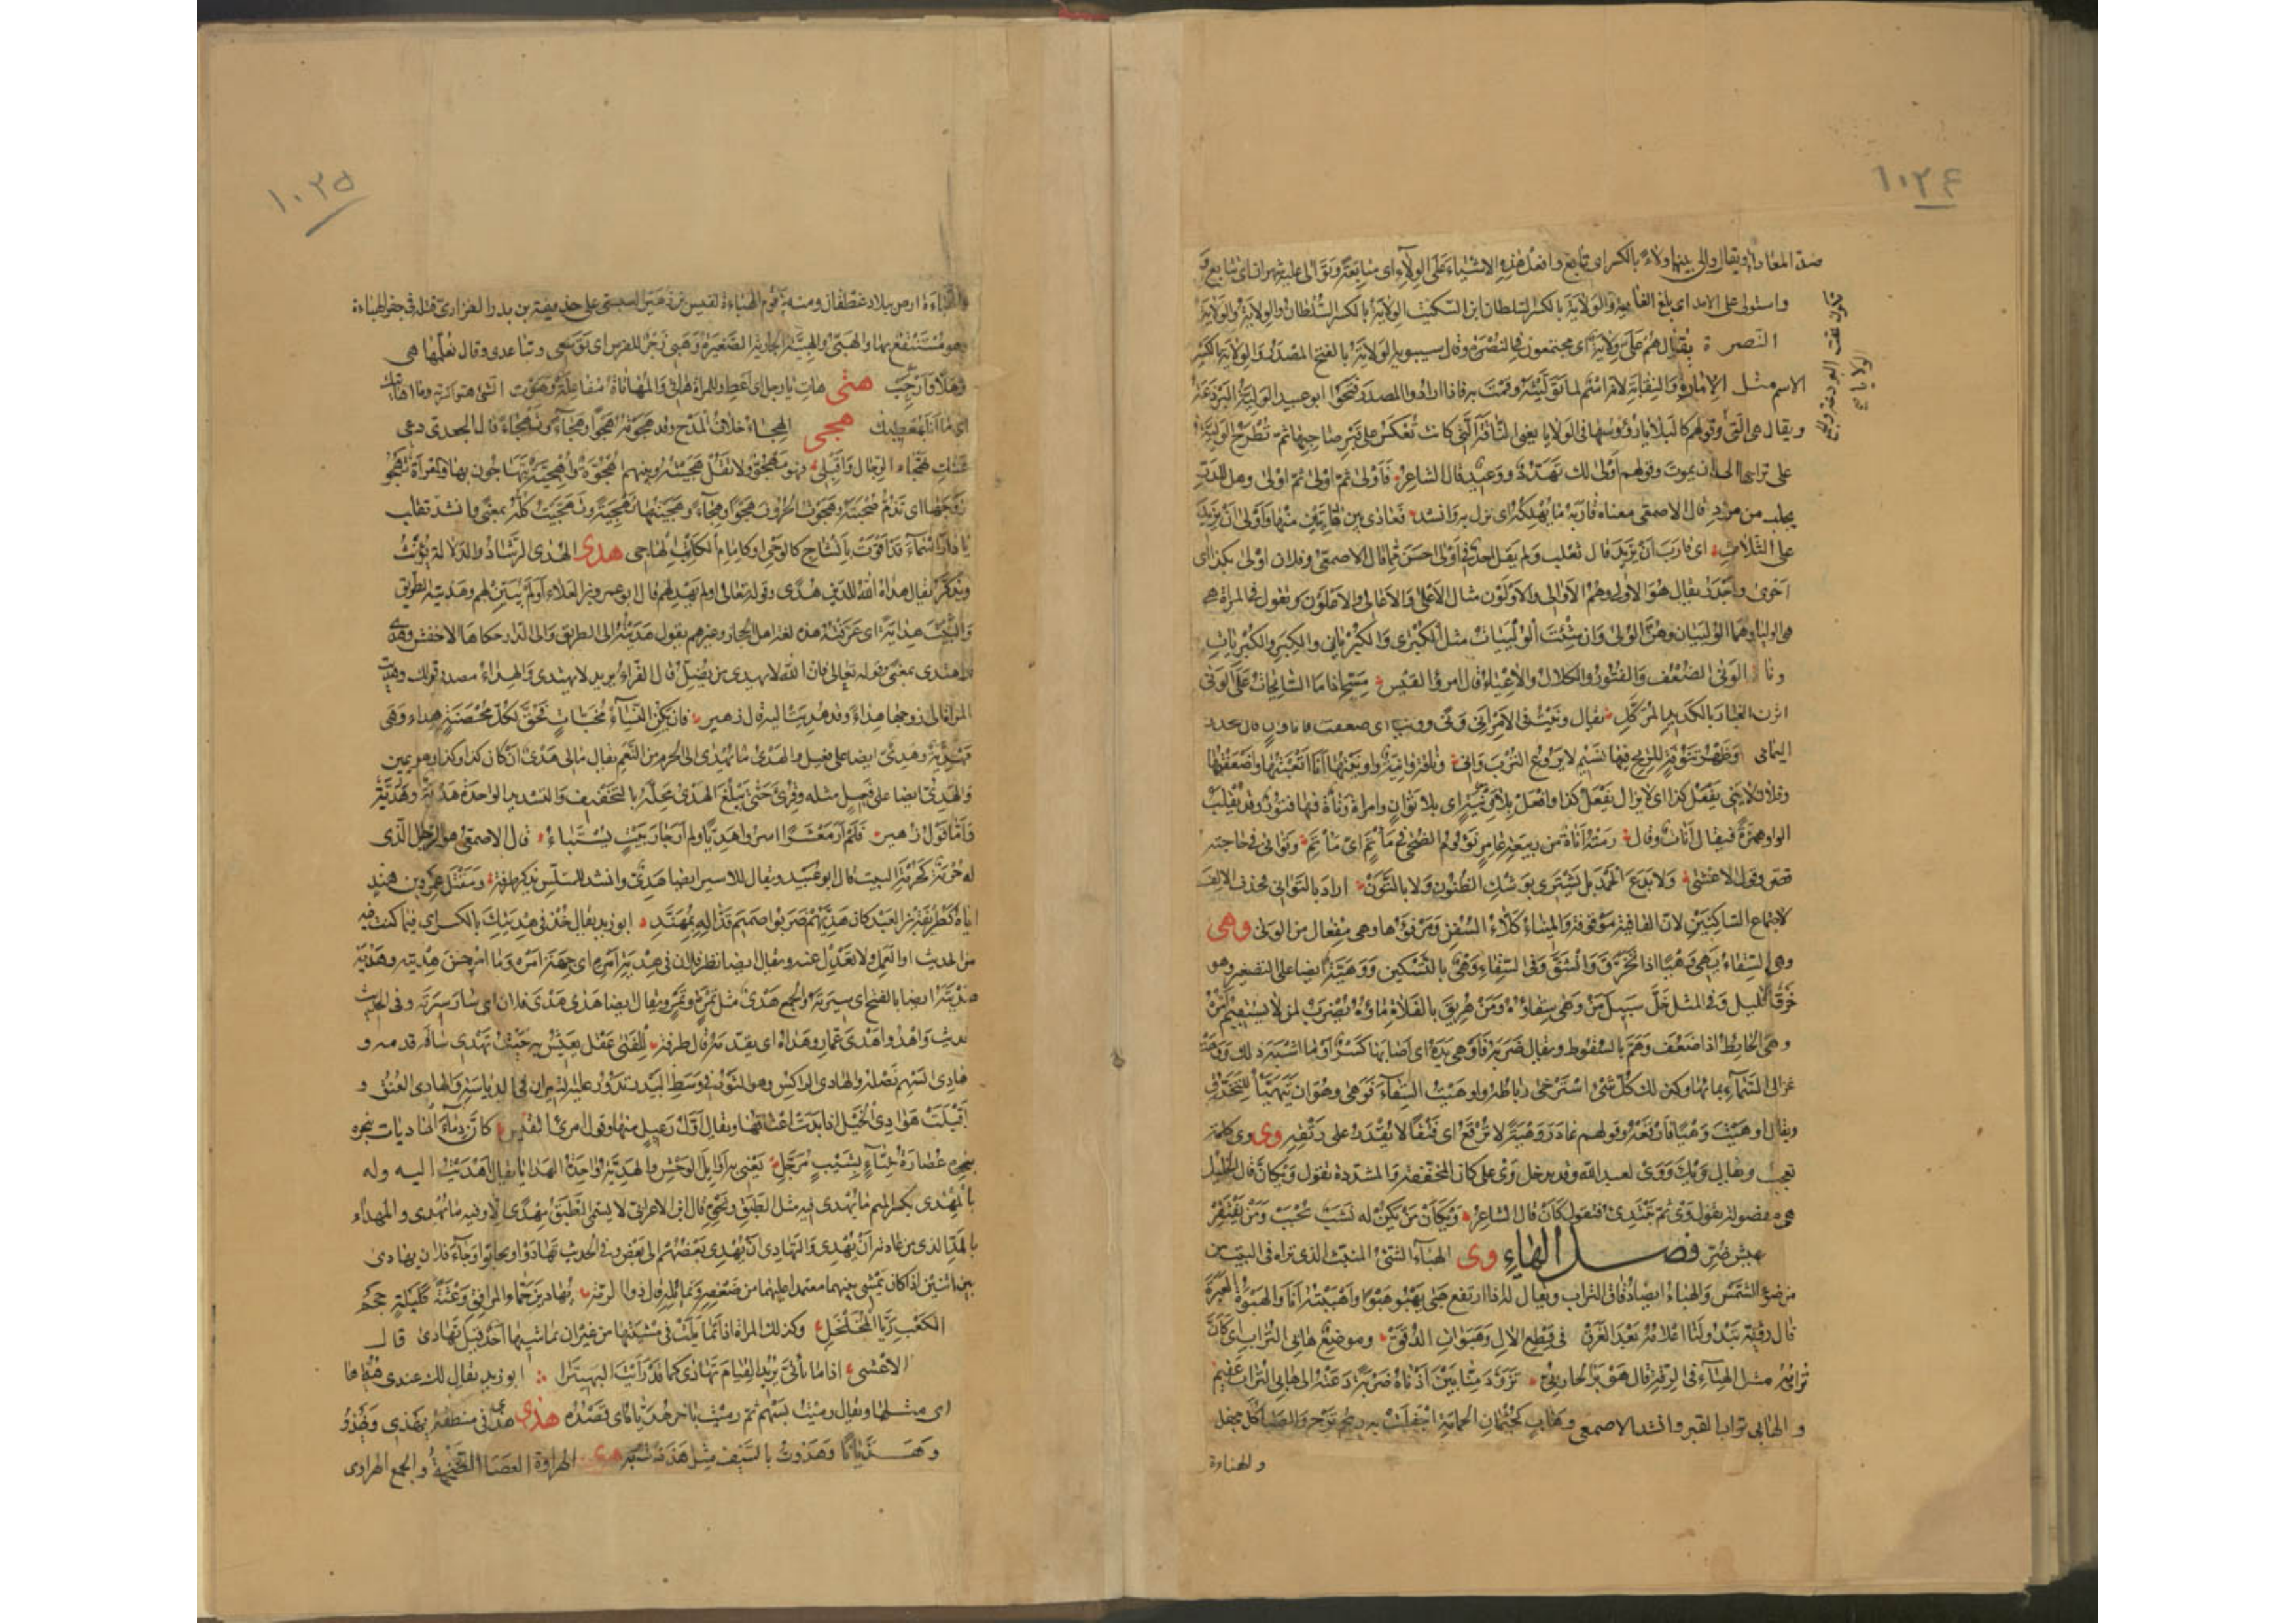 ١٠٢٤
ضد المعاداة ويقال والى بينهما ولاء بالكسر اى تابع وافعل هذه الاشياء على الولاء اى متابعة وتوالى عليه شهران اى تتابع و
واستولى على الامد اى بلغ الغاية والولاية بالكسر السلطان ابن السكيت الولاية بالكسر السلطان والولاية والولاية
النصرة يقال هم على ولاية اى مجتمعون فى النصرة وقال سيبويه الولاية بالفتح المصدر والولاية بالكسر
الاسم مثل الامارة والنقابة لانه اسم لما توليته وقمت به فاذا ارادوا المصدر فتحوا ابو عبيد الولية البرذعة
ويقال هى التى وقولهم كالبلايا رؤوسها فى الولايا يعنى الناقة التى كانت تعكس على قبر صاحبها ثم تطرح الولية
على راسها الى ان يموت وقولهم اولى لك تهدد ووعيد قال الشاعر فاولى ثم اولى ثم اولى وهل للدر
يحلب من مرد قال الاصمعى معناه قاربه ما يهلكه اى نزل به وانشد فعادى بين هاديتين منها واولى ان يزيد
على الثلاث اى قارب ان يزيد قال ثعلب ولم يقل احد فى اولى احسن مما قال الاصمعى وفلان اولى بكذا اى
احرى واجدر يقال هو الاولى وهم الاوالى والاولون مثال الاعلى والاعالى والاعلون وتقول فى المراة هى
هى الوليا وهما الولييان وهن الولى وان شئت الولييات مثل الكبرى والكبريان والكبر والكبريات
ونا الونى الضعف والفتور والكلال والاعياء قال امرؤ القيس مسح اذا ما السابحات على الونى
اثرن الغبار بالكديد المركل يقال ونيت فى الامر انى ونى وونيا اى ضعفت فانا وان قال جحدر
اليمامى وظهر تنوفة للريح فيها نسيم لا يروع الترب وانى وناقة وانية واونيتها انا اتعبتها واضعفتها
وفلان لا ينى يفعل كذا اى لا يزال يفعل كذا وافعل بلا ونية اى بلا توان وامراة وناة فيها فتور وقد يقلب
الواو همزة فيقال اناة وقال رمته اناة من ربيعة عامر نؤوم الضحى فى ماتم اى ماتم وتوانى فى حاجته
قصر وقول الاعشى ولا يدع الحمد بل يشترى بوشك الظنون ولا بالتون اراد بالتوانى فحذف الالف
لاجتماع الساكنين لان القافية موقوفة والميناء كلاء السفن ومرفؤها وهى مفعال من الونى وهى
وهى السقاء يهى وهيا اذا تخرق وانشق وفى السقاء وهى بالتسكين ووهية ايضا على التصغير وهو
خرق قليل وفى المثل خل سبيل من وهى سقاؤه ومن هريق بالفلاة ماؤه يضرب لمن لا يستقيم امره
وهى الحايط اذا ضعف وهم بالسقوط ويقال ضربه فاوهى يده اى اصابها كسر او ما اشبه ذلك ووهت
عزالى السماء بمائها وكذلك كل شئ استرخى رباطه واوهيت السقاء فوهى وهو ان يتهيا للتخرق
ويقال اوهيت وهيا فارقعه وقولهم غادر وهية لا ترقع اى فتقا لا يقدر على رتقه وى وى كلمة
تعجب ويقال ويك ووى لعبد الله وقد يدخل وى على كان المخففة والمشددة تقول ويكان قال الخليل
هى مفصولة تقول وى ثم تبتدى فتقول كان قال الشاعر ويكان من يكن له نشب يحبب ومن يفتقر
يعش عيش ضر فصل الهاء وى الهباء الشئ المنبث الذى تراه فى البيت من
من ضوء الشمس والهباء ايضا دقاق التراب ويقال له اذا ارتفع هبا يهبو هبوا واهبيته انا والهبوة الغبرة
قال رؤبة تبدو لنا اعلامه بعد الغرق فى قطع الال وهبوات الدقق وموضع هابى التراب اى كان
ترابه مثل الهباء فى الرقة قال هوبر الحارثى تزود منا بين اذناه ضربة دعته الى هابى التراب عقيم
والهابى تراب القبر وانشد الاصمعى وهاب كجثمان الحمامة اجفلت به ريح ترج والصبا كل مجفل
والهباءة
١٠٢٥
والهباءة ارض ببلاد غطفان ومنه يوم الهباءة لقيس بن زهير العبسى على حذيفة بن بدر الفزارى قتله فى جفر الهباءة
وهو مستنقع بها والهبى والهبية الجارية الصغيرة وهبى زجر للفرس اى توسعى وتباعدى وقال نعلمها هبى
وهلا وارحب هتى هات يا رجل اى اعط وللمراة هاتى والمهاتاة مفاعلة
اى ما انا بمعطيك هجى الهجاء خلاف المدح وقد هجوته هجوا وهجاء وتهجاء قال الجعدى دعى
عنك تهجاء الرجال واقبلى فهو مهجو ولا تقل هجيته وبينهم اهجوة واهجية يتهاجون بها والمراة تهجو
زوجها اى تذم صحبته وهجوت الحروف هجوا وهجاء وهجيتها تهجية وتهجيت كله بمعنى وانشد ثعلب
يا دار اسماء قد اقوت بانشاج كالوحى او كامام الكاتب الهاجى هدى الهدى الرشاد والدلالة يؤنث
ويذكر يقال هداه الله للدين هدى وقوله تعالى اولم يهد لهم قال ابو عمرو بن العلاء اولم يبين لهم وهديته الطريق
والبيت هداية اى عرفته هذه لغة اهل الحجاز وغيرهم يقول هديته الى الطريق والى الدار حكاها الاخفش وهدى
واهتدى بمعنى وقوله تعالى فان الله لا يهدى من يضل قال الفراء يريد لا يهتدى والهداء مصدر قولك هديت
المراة الى زوجها هداء وقد هديت اليه قال زهير فان يكن النساء مخبات فحق لكل محصنة هداء وهى
مهدية وهدى ايضا على فعيل والهدى ما يهدى الى الحرم من النعم يقال مالى هدى ان كان كذا وكذا وهو يمين
والهدى ايضا على فعيل مثله وقرئ حتى يبلغ الهدى محله بالتخفيف والتشديد الواحدة هدية وهدية
واما قول زهير فلم ار معشرا اسروا هديا ولم ار جار بيت يستباء قال الاصمعى هو الرجل الذى
له حرمة كحرمة البيت قال ابو عبيد ويقال للاسير ايضا هدى وانشد للمتلمس يذكر طرفة ومقتل عمرو بن هند
اياه كطريفة بن العبد كان هديهم ضربوا صميم قذاله بمهند ابو زيد يقال خذ فى هديتك بالكسر اى فيما كنت فيه
من الحديث او العمل ولا تعدل عنه ويقال ايضا نظر فلان فى هدية امره اى جهة امره وما احسن هديته وهديته
هديته ايضا بالفتح اى سيرته والجمع هدى مثل تمرة وتمر ويقال ايضا هدى هدى فلان اى سار سيرته وفى الحديث
واهدوا هدى عمار وهداه اى يقدمه قال طرفة للفتى عقل يعيش به حيث تهدى ساقه قدمه و
هادى السهم نصله والهادى الراكس وهو الثور فى وسط البيدر تدور عليه الثيران فى الدياسة والهادى العنق و
اقبلت هوادى الخيل اذا بدت اعناقها ويقال اول رعيل منها وقول امرئ القيس كان دماء الهاديات بنحره
بنحره عصارة حناء بشيب مرجل يعنى به اوايل الوحش والهدية واحدة الهدايا يقال اهديت اليه وله
والمهدى بكسر الميم ما يهدى فيه مثل الطبق ونحوه قال ابن الاعرابى لا يسمى الطبق مهدى الا وفيه ما يهدى والمهداء
بالمد الذى من عادته ان يهدى والتهادى ان يهدى بعضهم الى بعض وفى الحديث تهادوا وتحابوا وجاء فلان يهادى
بين اثنين اذا كان يمشى بينهما معتمدا عليهما من ضعفه وتمايله قال ذو الرمة يهادين جماء المرافق وعثة كليلة حجم
الكعب ريا المخلخل وكذلك المراة اذا تمايلت فى مشيتها من غير ان يماشيها احد قيل تهادى قال
الاعشى اذا ما تاتى تريد القيام تهادى كما قد رايت البهيرا ابو زيد يقال لك عندى هدياها
اى مثلها ويقال رميت بسهم ثم رميت باخر هدياه اى قصده هذى هذى فى منطقه يهذى ويهذو
وهذيانا وهذوت بالسيف مثل هذذت هرى الهراوة العصا الضخمة والجمع الهراوى